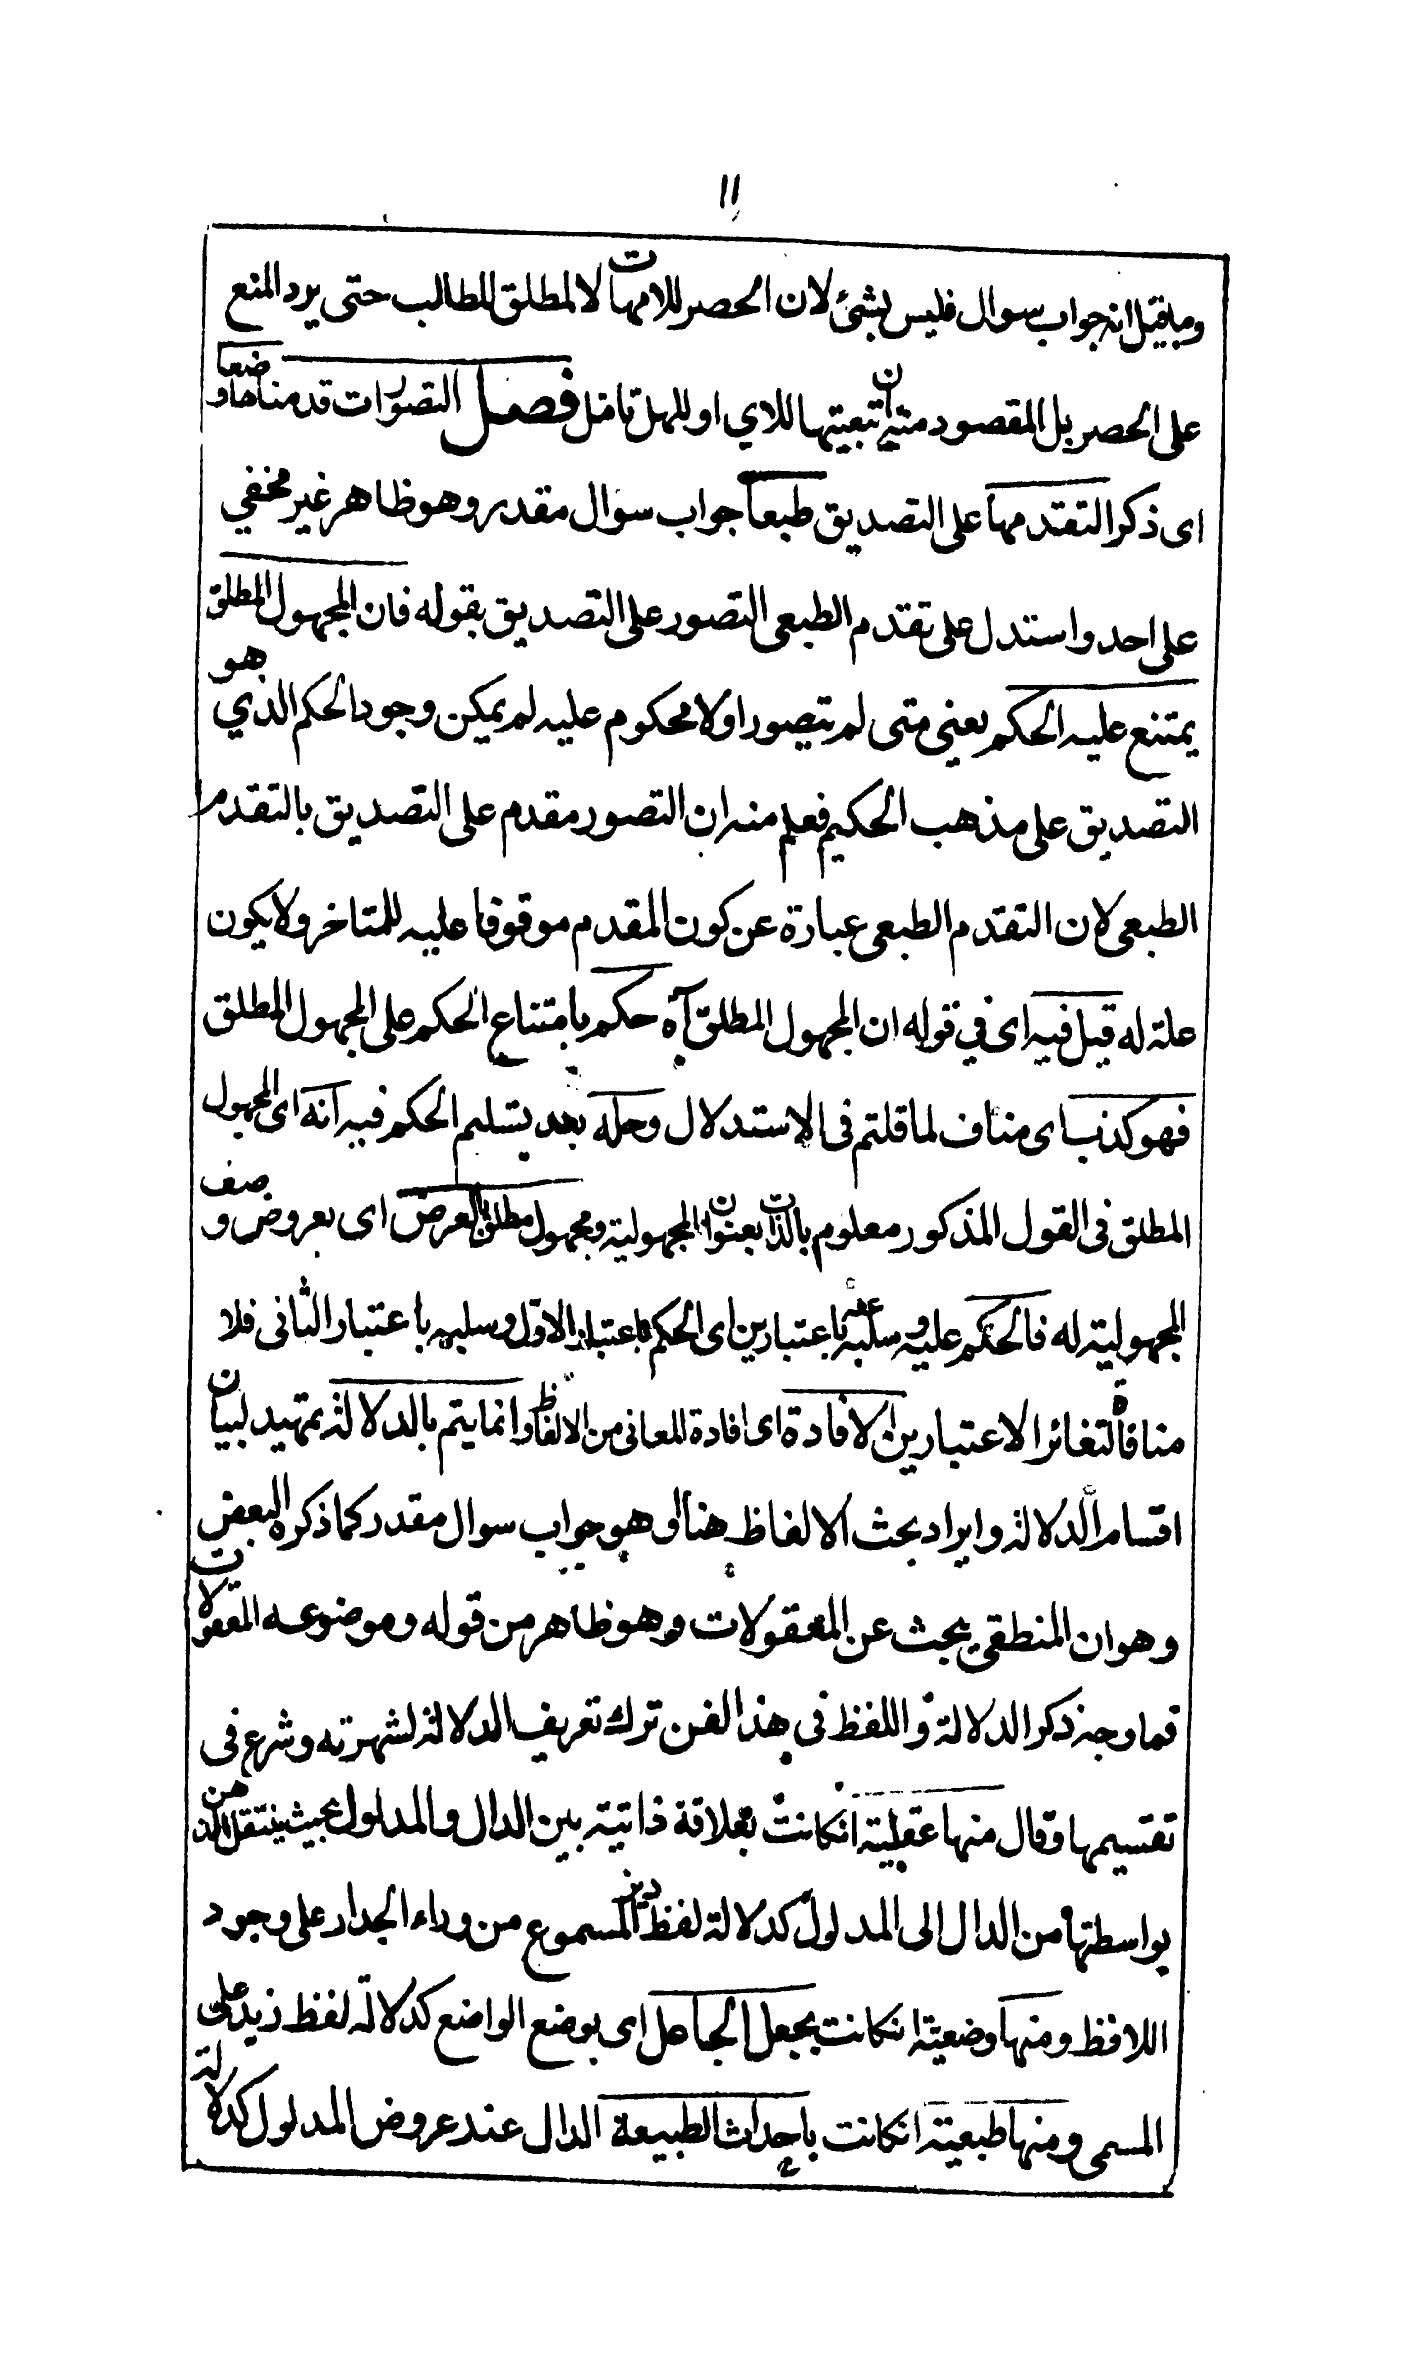 ١١
وما قيل انه جواب سوال فليس بشئ لان الحصر للامهات لا لمطلق المطالب حتى يرد المنع
على الحصر بل المقصود منه ان تبعيتها للاي او للهل تامل فصل التصورات قدمناها وضعا
اى ذكرا لتقدمها على التصديق طبعا جواب سوال مقدر وهو ظاهر غير مخفي
على احد واستدل على تقدم الطبعى التصور على التصديق بقوله فان المجهول المطلق
يمتنع عليه الحكم يعنى متى لم يتصور اولا محكوم عليه لم يمكن وجود الحكم الذي هو
التصديق على مذهب الحكيم فعلم منه ان التصور مقدم على التصديق بالتقدم
الطبعى لان التقدم الطبعى عبارة عن كون المقدم موقوفا عليه للمتاخر ولا يكون
علة له قيل فيه اى في قوله ان المجهول المطلق آه حكم بامتناع الحكم على المجهول المطلق
فهو كذب اى مناف لما قلتم فى الاستدلال وحله بعد تسليم الحكم فيه انه اى المجهول
المطلق فى القول المذكور معلوم بالذات بعنوان المجهولية ومجهول مطلق بالعرض اى بعروض وصف
المجهولية له فالحكم عليه وسلبه عنه باعتبارين اى الحكم باعتبار الاول وسلبه باعتبار الثانى فلا
منافاة لتغائر الاعتبارين الافادة اى افادة المعانى من الالفاظ وانما يتم بالدلالة تمهيد لبيان
اقسام الدلالة وايراد بحث الالفاظ هنا او هو جواب سوال مقدر كما ذكره البعض
وهو ان المنطقى يبحث عن المعقولات وهو ظاهر من قوله وموضوعه المعقولات
فما وجه ذكر الدلالة واللفظ فى هذا الفن ترك تعريف الدلالة لشهرته وشرع فى
تقسيمها وقال منها عقلية انكانت بعلاقة ذاتية بين الدال والمدلول بحيث ينتقل الذهن
بواسطتها من الدال الى المدلول كدلالة لفظ ديز المسموع من وراء الجدار على وجود
اللافظ ومنها وضعية انكانت بجعل الجاعل اى بوضع الواضع كدلالة لفظ زيد على
المسمى ومنها طبعية انكانت باحداث الطبيعة الدال عند عروض المدلول كدلالة